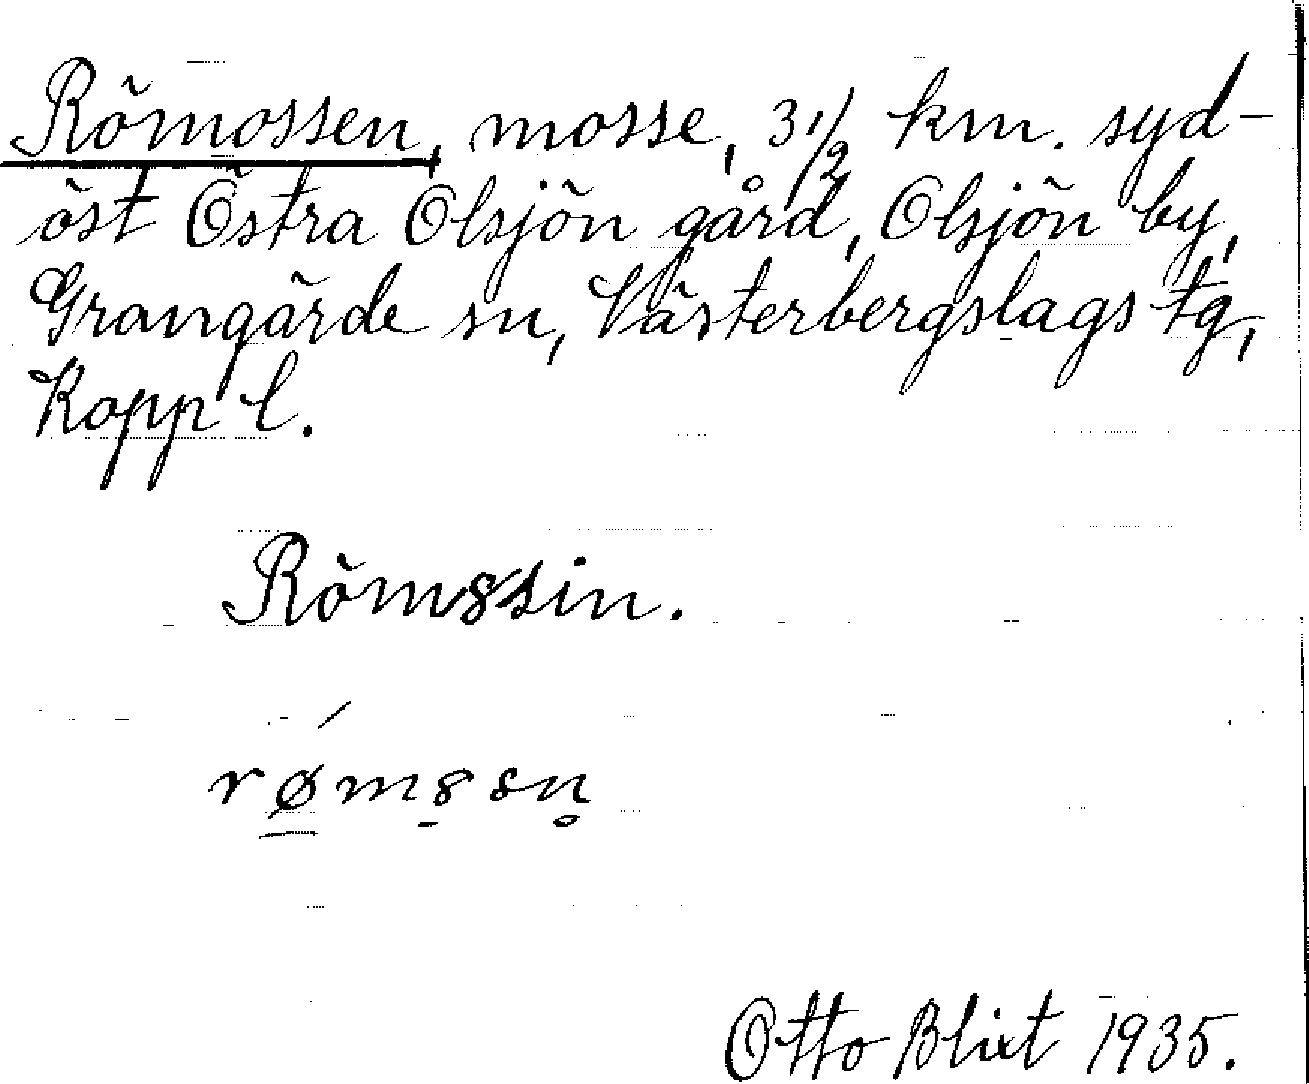 Römossen, mosse, 3 1/2 km. syd-
öst Östra Olsjön gård, Olsjön by,
Grangärde sn, Västerbergslags tg,
Kopp l.
Röm8sin.
røm8sn̥
Otto Blixt 1935.